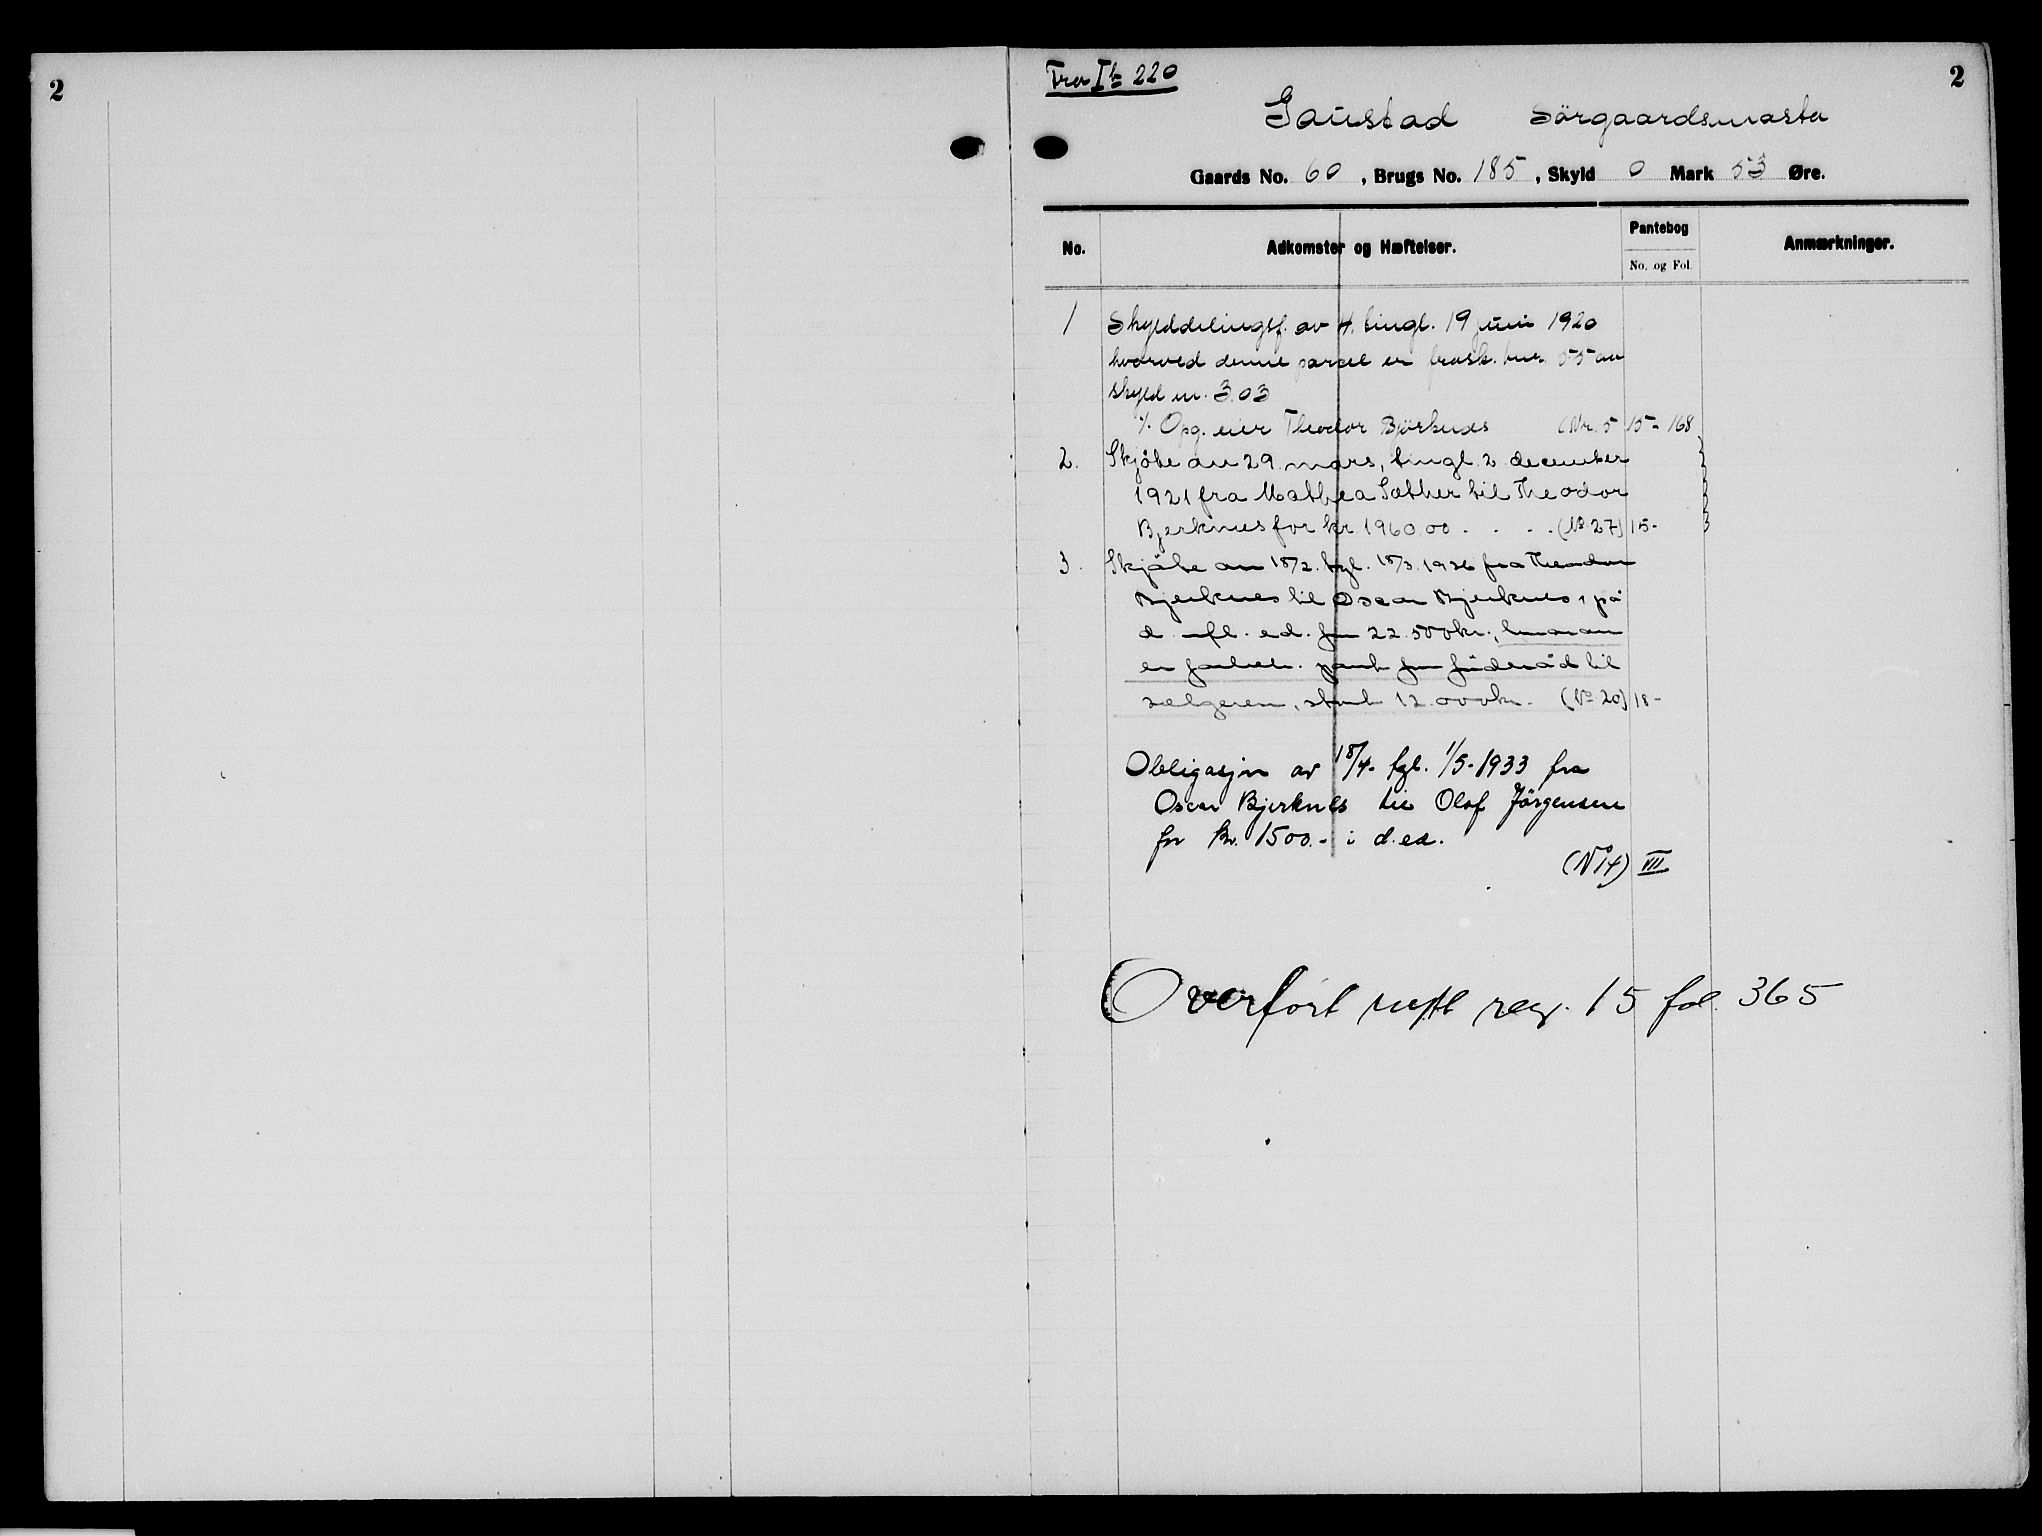 2
2
Fra I b 220
Gaustad Sörgaardsmasta
Gaards No. 60, Brugs No. 185, Skyld 0 Mark 53 Øre.
No.
Adkomster og Hæftelser.
Pantebog
No. og Fol.
Anmærkninger.
1 Skylddelingsf. av 4. tingl. 19 juni 1920
hvorved denne parcel er frask. bnr. 55 av
skyld m. 3.03
Opg. eier Theodor Björknes (Nr. 5 15 - 168
2. Skjöte av 29. mars, tingl. 2 december
1921 fra Mathea Sæther til Theodor
Bjerknes for kr 1960.00 . . . . (No 27) 15-
3. Skjöte av 18/2. tgl. 18/3. 1926 fra Theodor
Bjerknes til Oscar Bjerknes, på
d. ufl. ed. for 22.500 kr., hvorav
er forbeh. pant for föderåd til
selgeren, stort 12.000 kr. (No 20) 18-
Obligasjon av 18/4. tgl. 1/5-1933 fra
Oscar Bjerknes til Olof Jörgensen
for kr. 1500.- i d. ed.
(No 14) VII
Overført reg. 15 fol. 365